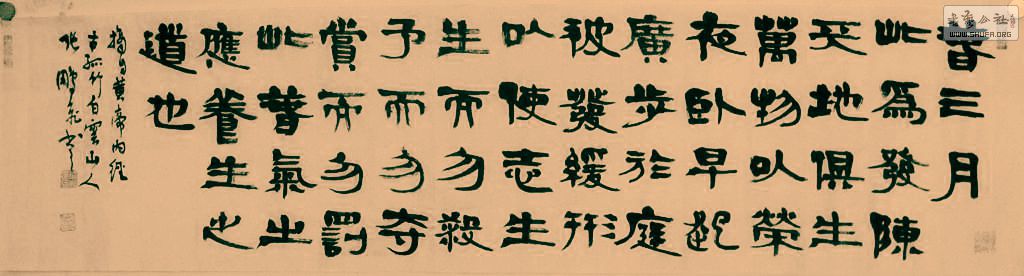 春三月
此為發陳
天地俱生
萬物以榮
夜臥早起
廣步於庭
被發緩形
以使志生
生而勿殺
予而勿夺
賞而勿罰
此春氣之
應養生之
道也
摘自黃帝內經
古孤竹白雲山人
書法公社
WWW.SHUFA.ORG